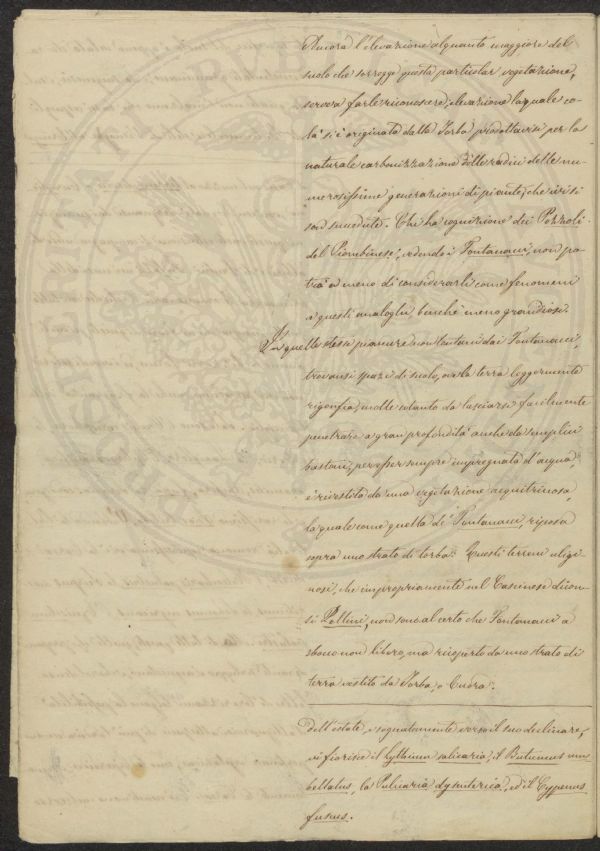 Ancora l'elevazione alquanto maggiore del
suolo che sorregge questa particolar vegetazione,
serve a farle riconoscere; elevazione la quale co-
là si è originata dalla Torba producttavisi per la
naturale carbonizzazione delle radici delle nu-
merosissime generazioni di piante, che ivi si
son succedute. Chi ha cognizione dei Pozzali
del Piombinese, vedendo i Fontanacci, non po-
trà a meno di considerarli come fenomeni
a questi analoghi, benchè meno grandiosi.
In quelle stesse pianure non lontani dai Fontanacci,
trovansi spazi di suolo, ove la terra leggermente
rigonfia, molle cotanto da lasciarsi facilmente
penetrare a gran profondità anche da semplici
bastoni, per esser sempre impregnata d'acqua,
è rivestita da una vegetazione acquitrinosa,
la quale come quella di Fontanacci, riposa
sopra uno strato di torba. Questi terreni uligi-
nosi, che impropriamente nel Cascinese dicon-
si Pollini, non sono al certo che Fontanacci a
sbocco non libero, ma ricoperto da uno strato di
terra vestito da Torba, o Cuora.
Dell'estate, e segnatamente verso il suo declinare,
vi fiorisce il Lythrum salicaria, il Butomus um-
bellatus, la Pulicaria dysenterica, ed il Cyperus
fuscus.